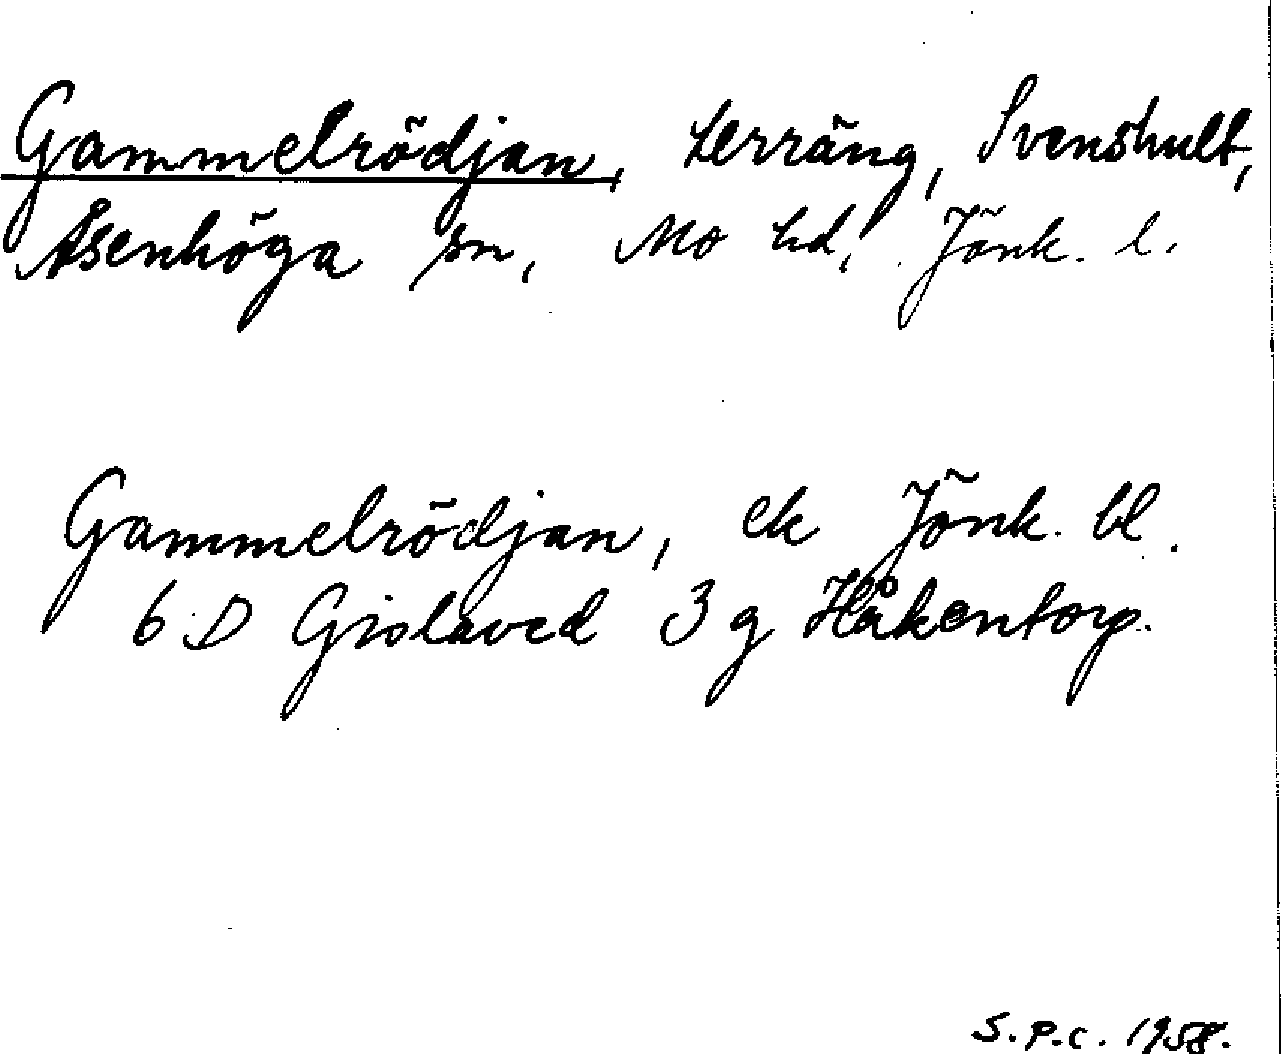 Gammelrödjan, terräng, Svenshult,
Åsenhöga sn, Mo hd, Jönk. l.
Gammelrödjan, ek Jönk. bl.
6 D Gislaved 3 g Håkentorp.
S.P.C. 1958.